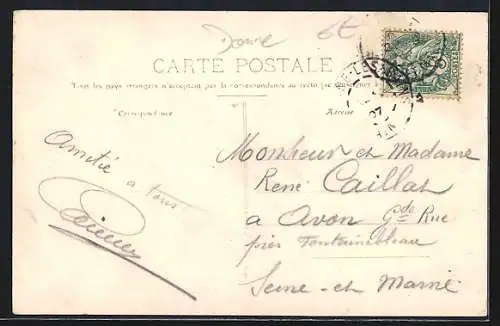 Donne 6E
CARTE POSTALE
Tous les pays étrangers n'acceptent pas la correspondance au recto, (se renseigner à
Correspondance
Adresse
Amitié
a tous
Monsieur et Madame
René Caillat
a Avon Gde Rue
près Fontainebleau
Seine-et Marne